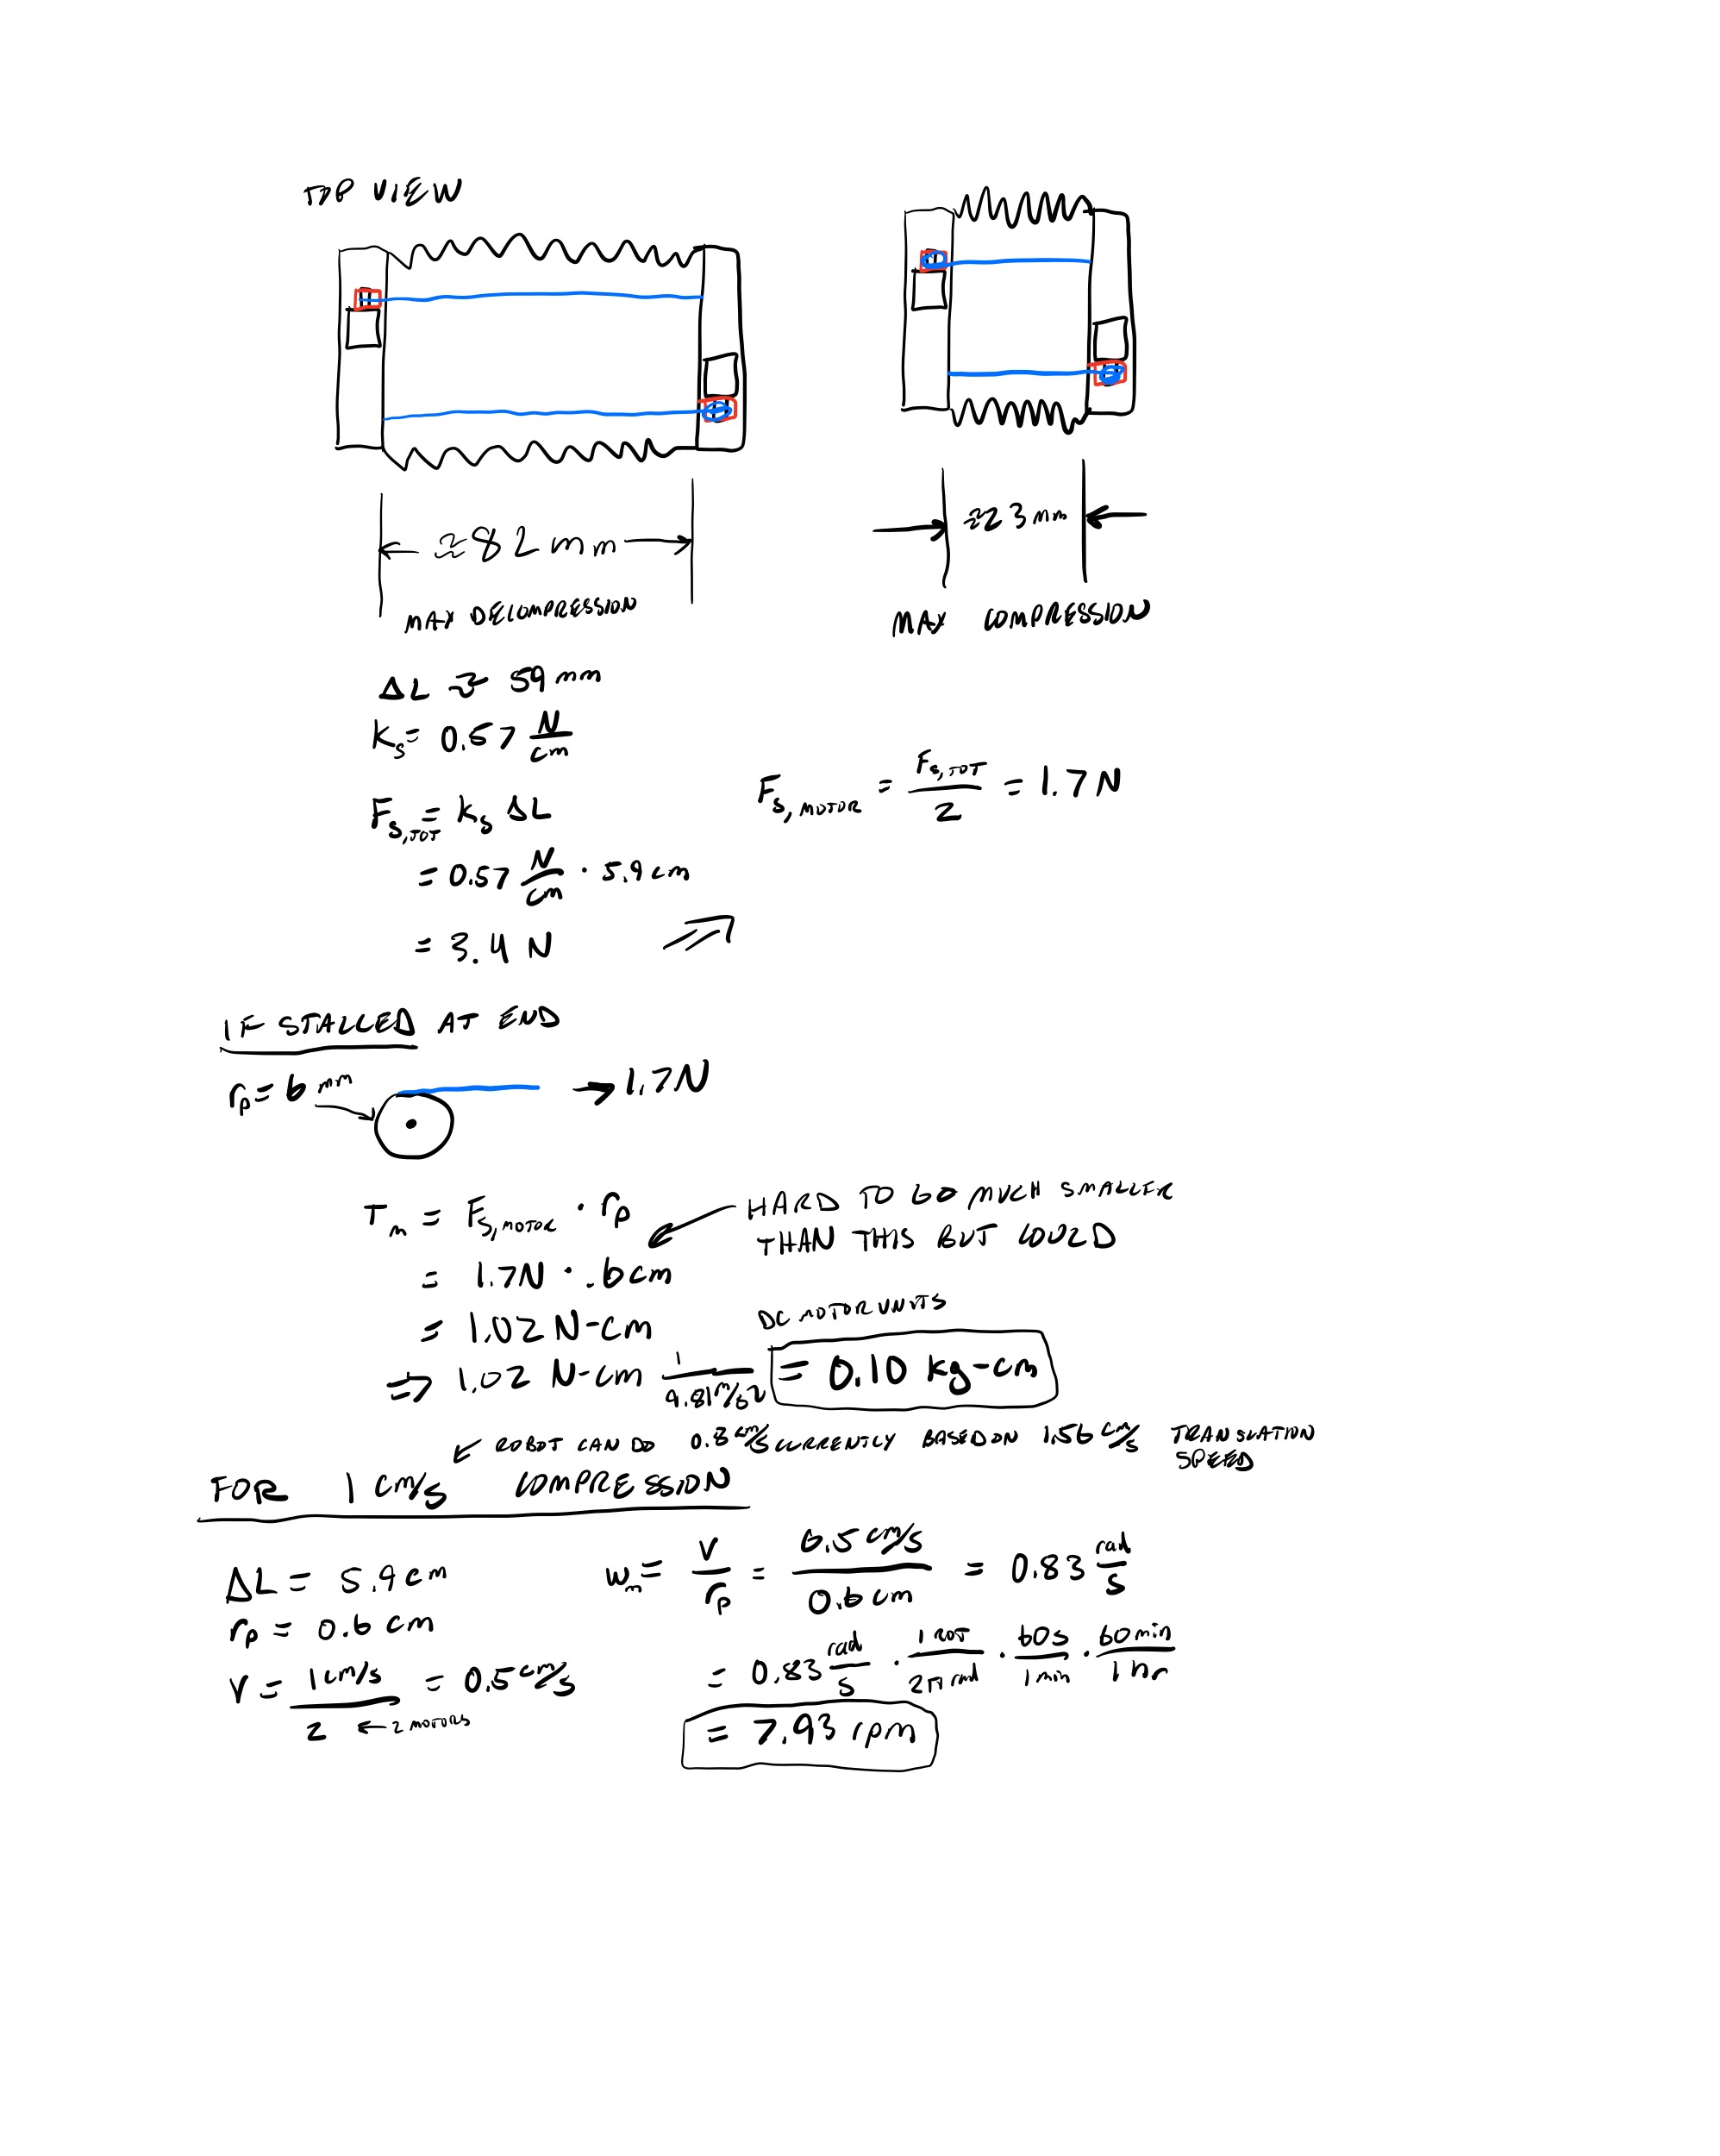 TOP VIEW
≈82 mm
MAX DECOMPRESSION
≈23 mm
MAX COMPRESSION
ΔL ≈ 59 mm
Ks = 0.57 N/cm
Fs,TOT = Ks ΔL
= 0.57 N/cm · 5.9 cm
= 3.4 N
Fs,MOTOR = Fs,TOT/2 = 1.7 N
IF STALLED AT END
rp = 6 mm
→ 1.7N
Tm = Fs,MOTOR · rp
HARD TO GO MUCH SMALLER
THAN THIS BUT COULD
= 1.7N · .6cm
= 1.02 N-cm
DC MOTOR UNITS
⇒ 1.02 N-cm 1/9.81m/s2 = 0.10 kg-cm
ROBOT CAN DO 0.8 cm/s CURRENTLY BASED ON 1.56 cm/s TRANSLATION
SPEED
FOR 1 cm/s COMPRESSION
ΔL = 5.9 cm
rp = 0.6 cm
V = 1cm/s / 2 = 0.5 cm/s
← 2 MOTORS
wm = V/rp = 0.5 cm/s / 0.6 cm = 0.83 rad/s
= 0.83 rad/s · 1 ROT/2π rad · 60s/1 min · 60 min/1 hr
= 7.93 rpm